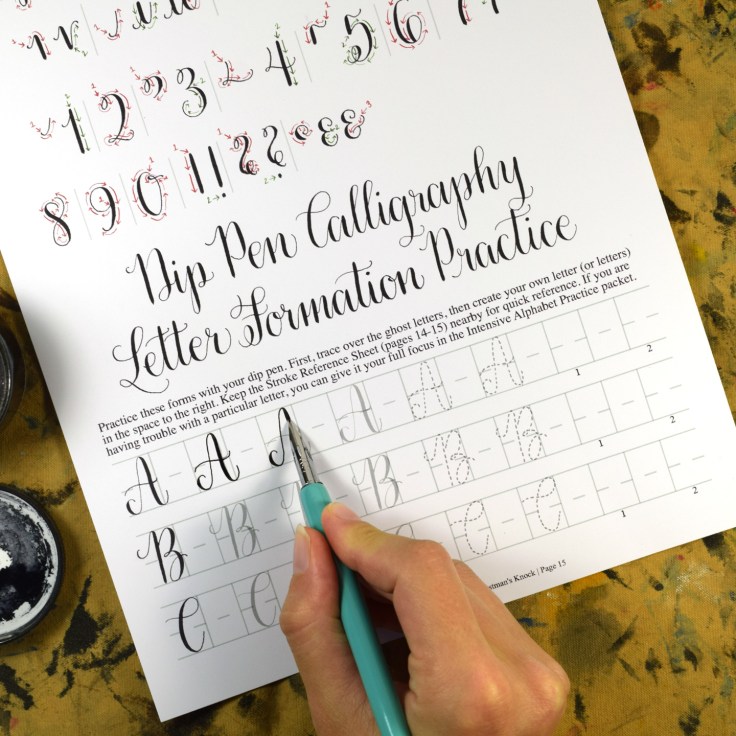 1 2 3 4 5 6 7
8 9 0 ! ? &
Dip Pen Calligraphy
Letter Formation Practice
Practice these forms with your dip pen. First, trace over the ghost letters, then create your own letter (or letters)
in the space to the right. Keep the Stroke Reference Sheet (pages 14-15) nearby for quick reference. If you are
having trouble with a particular letter, you can give it your full focus in the Intensive Alphabet Practice packet.
A A A A A A 1 2
B B B B B 1 2
C C C C C 1 2
Knock | Page 15